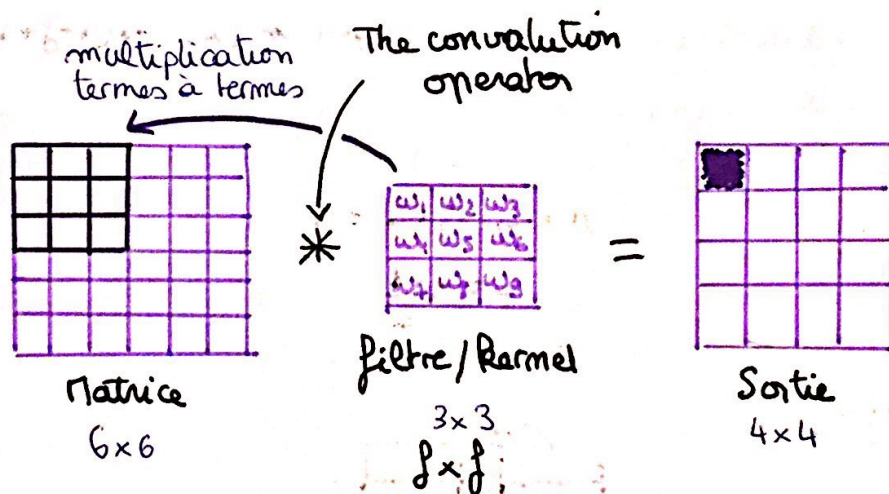 multiplication
termes à termes
The convalution
operator
*
ω1 ω2 ω3
ω4 ω5 ω6
ω7 ω8 ω9
=
Matrice
6×6
filtre/kernel
3×3
f×f
Sortie
4×4